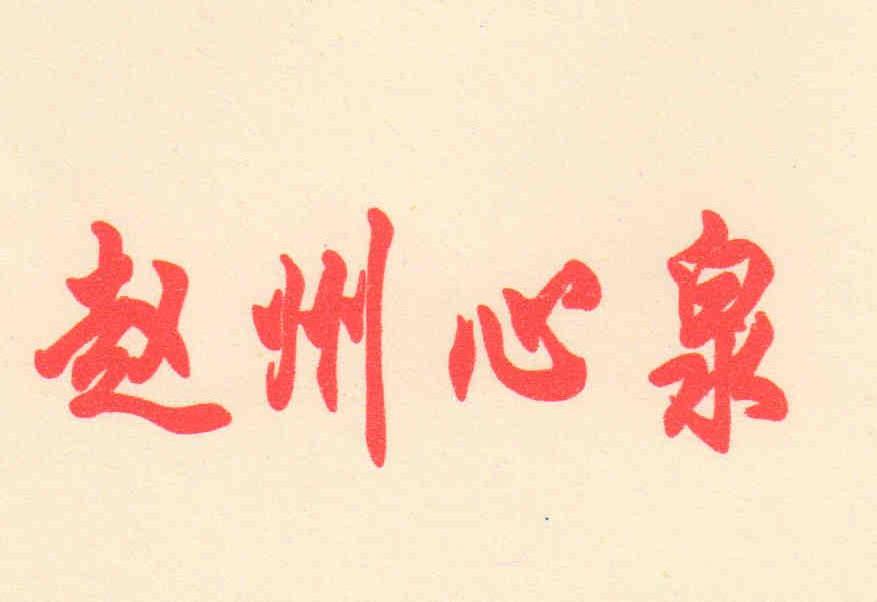 赵州心泉